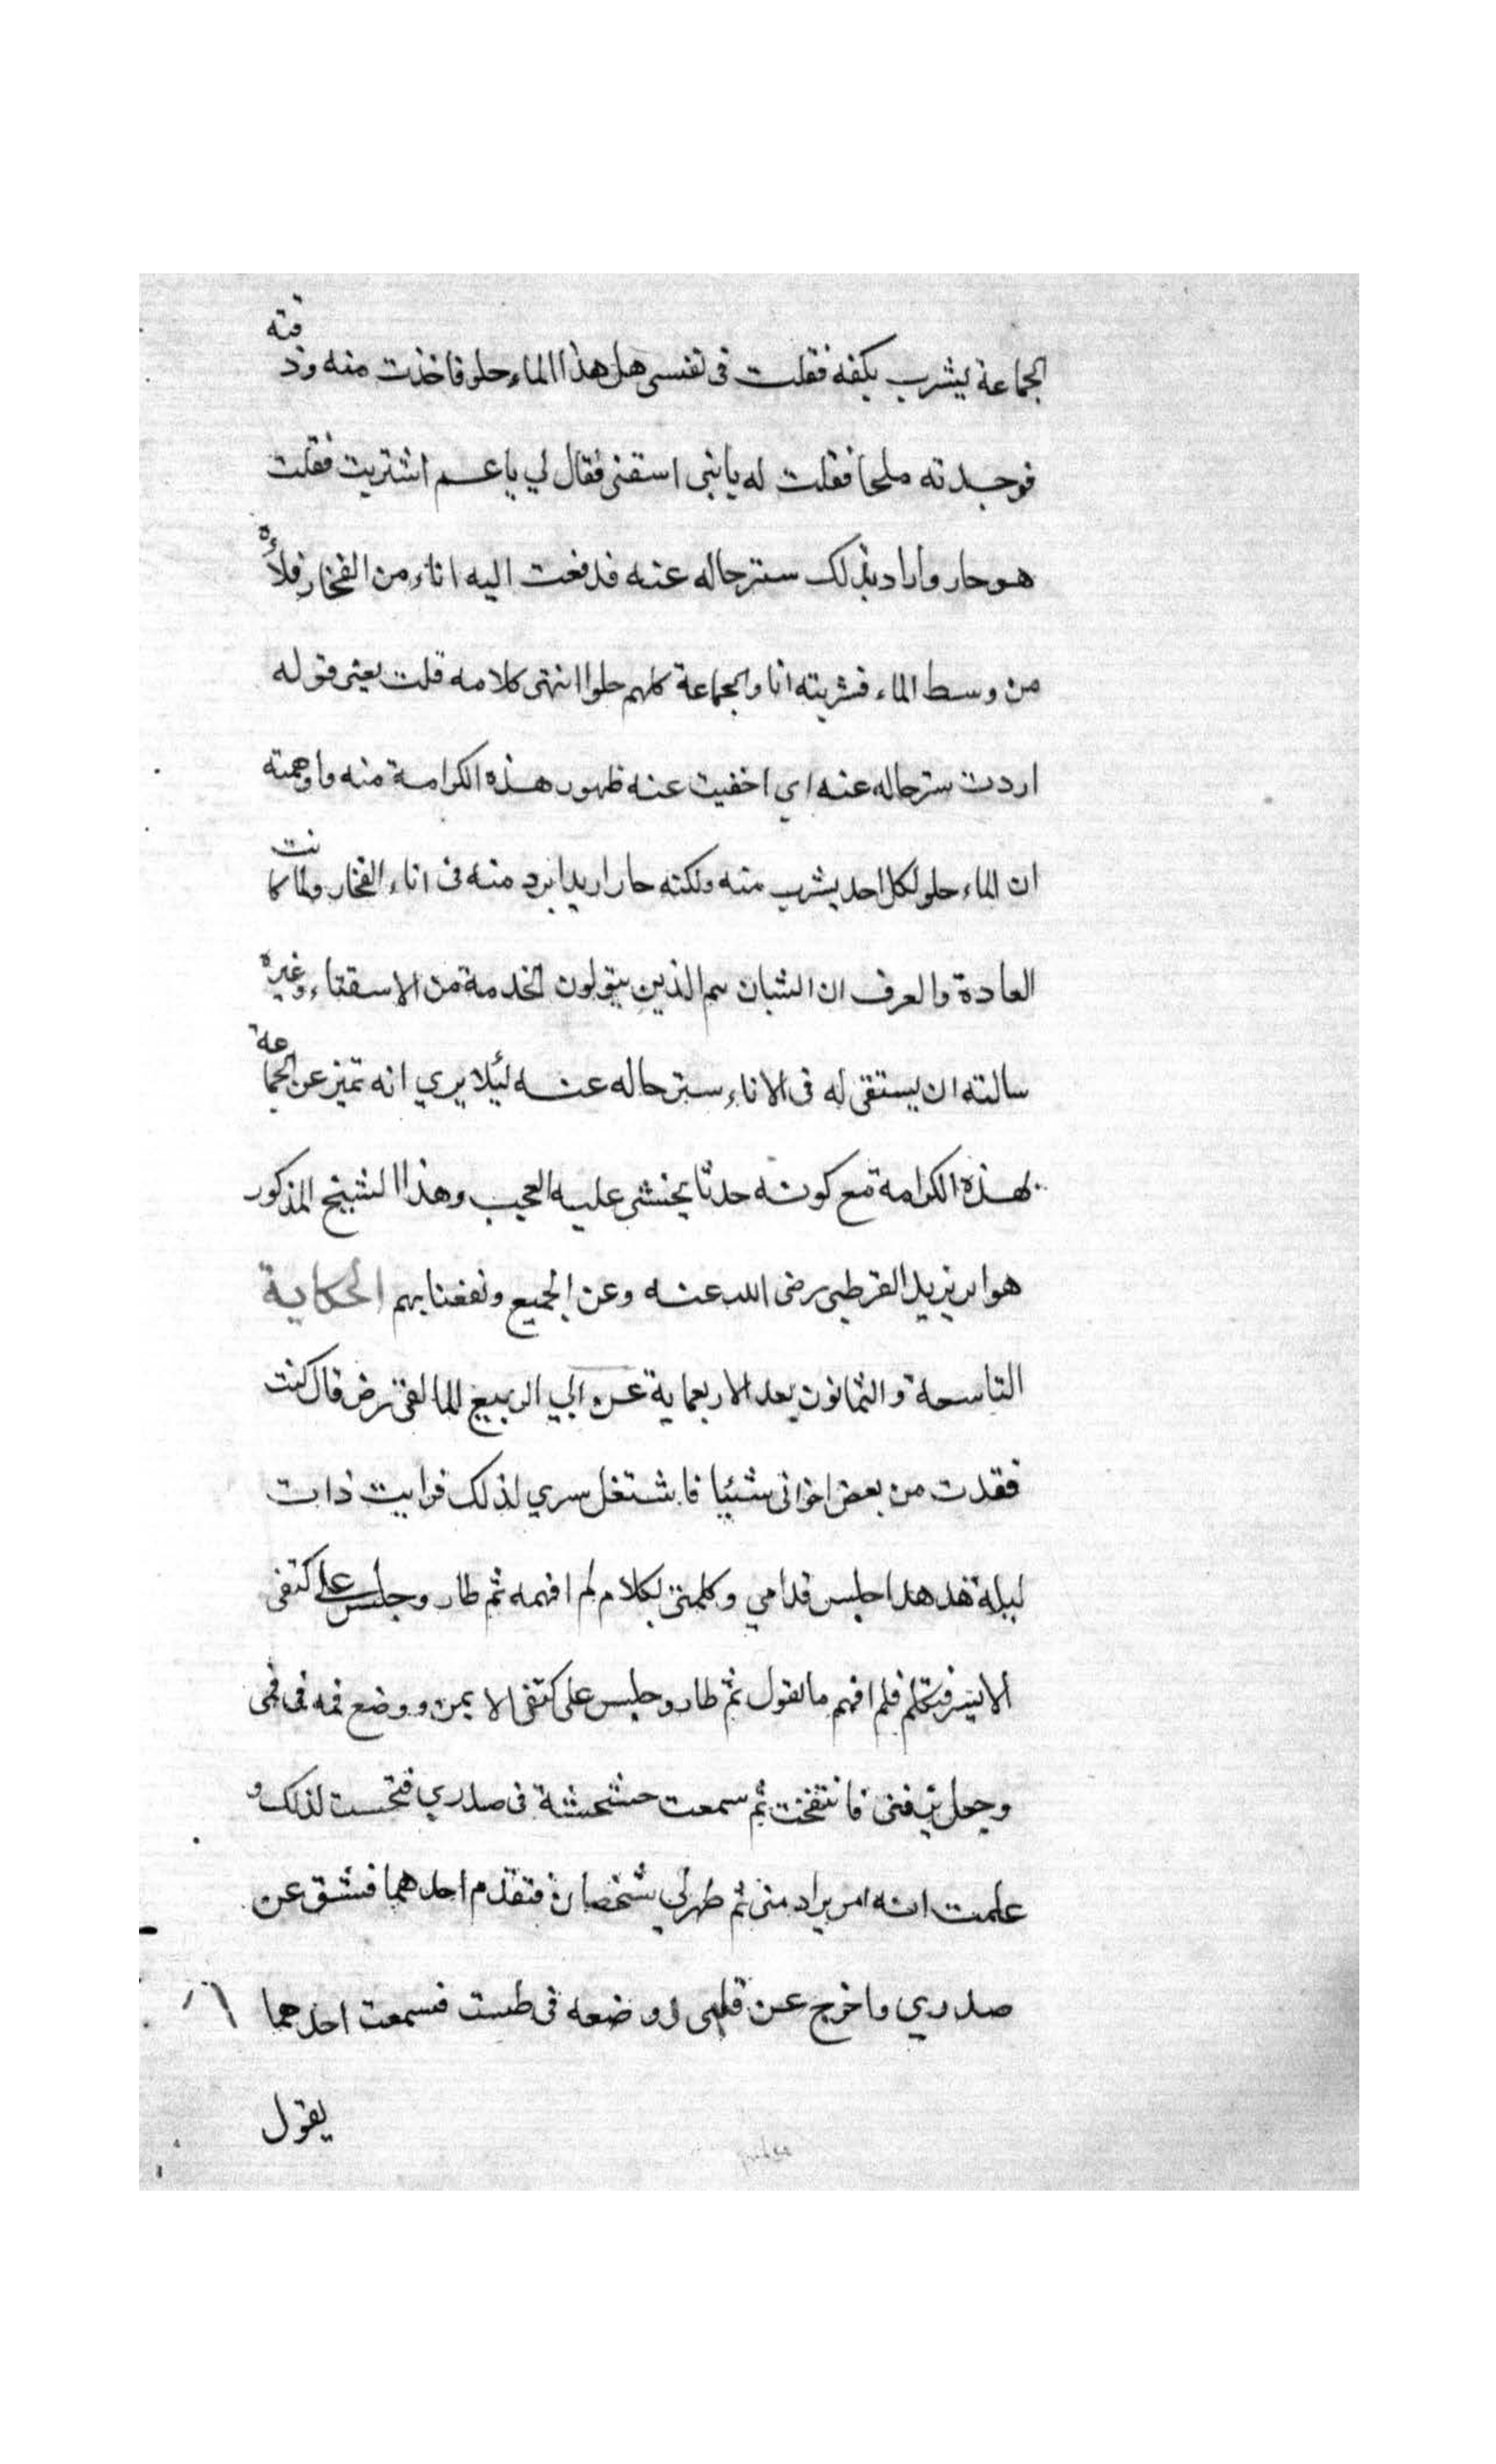 الجماعة يشرب بكفه فقلت فى نفسى هل هذا الماء حلو فاخذت منه وذقته
فوجدته ملحا فقلت له يا بنى اسقنى فقال لي يا عم اشتريت فقلت
هو حار واراد بذلك ستر حاله عنه فدفعت اليه اناء من الفخار فملأه
من وسط الماء فشربته انا والجماعة كلهم حلوا انتهى كلامه قلت يعنى قوله
اردت ستر حاله عنه اي اخفيت عنه ظهور هذه الكرامة منه واوهمته
ان الماء حلو لكل احد يشرب منه ولكنه حار اريد ابرد منه فى اناء الفخار ولما كانت
العادة والعرف ان الشبان هم الذين يتولون الخدمة من الاستقاء وغيره
سالته ان يستقى له فى الاناء ستر حاله عنه ليئلا يري انه تميز عن الجماعة
بهذه الكرامة مع كونه حدثا يخشى عليه العجب وهذا الشيخ المذكور
هو ابو يزيد القرطبى رضى الله عنه وعن الجميع ونفعنا بهم الحكاية
التاسعة والثمانون بعد الاربعماية عن ابي الربيع المالقى رض قال كنت
فقدت من بعض اخوانى شيئا فاشتغل سري لذلك فرايت ذات
ليلة هدهدا جلس قدامي وكلمنى بكلام لم افهمه ثم طار وجلس على كتفى
الايسر فتكلم فلم افهم ما يقول ثم طار وجلس على كتفى الايمن ووضع فمه فى فمى
وجعل يزقنى فانتفخت ثم سمعت خشخشة فى صدري لذلك و
علمت انه امر يراد منى ثم ظهر لي شخصان فتقدم احدهما فشق عن
صدري واخرج عن قلبى ووضعه فى طست فسمعت احدهما
يقول